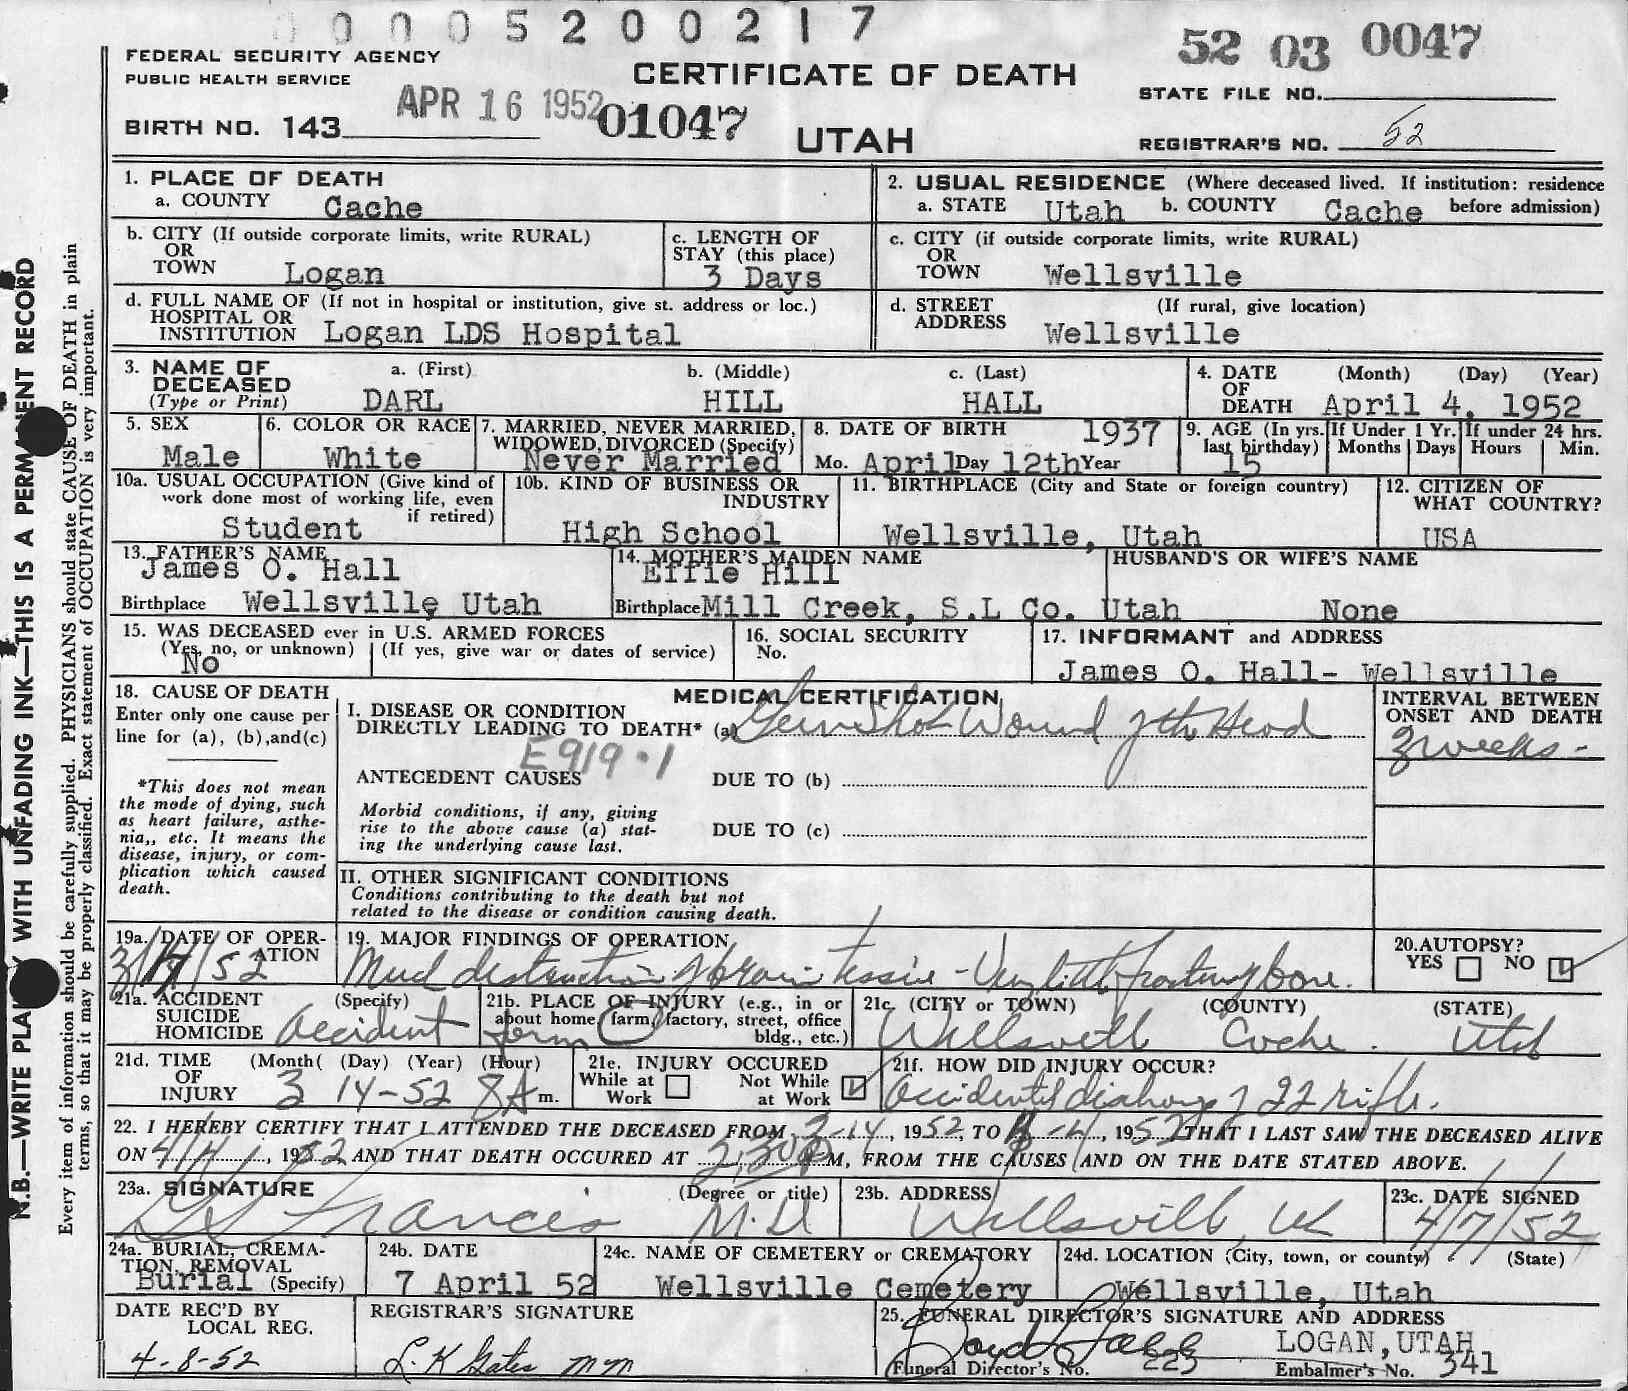 0 0 0 5 2 0 0 2 1 7
52 03 0047
FEDERAL SECURITY AGENCY
PUBLIC HEALTH SERVICE
CERTIFICATE OF DEATH
STATE FILE NO.
APR 16 1952 01047
BIRTH NO. 143
UTAH
REGISTRAR'S NO. 52
N.B.—WRITE PLAINLY WITH UNFADING INK—THIS IS A PERMANENT RECORD
Every item of information should be carefully supplied. PHYSICIANS should state CAUSE OF DEATH in plain
terms, so that it may be properly classified. Exact statement of OCCUPATION is very important.
1. PLACE OF DEATH
a. COUNTY Cache
2. USUAL RESIDENCE (Where deceased lived. If institution: residence
a. STATE Utah b. COUNTY Cache before admission)
b. CITY (If outside corporate limits, write RURAL)
OR
TOWN Logan
c. LENGTH OF
STAY (this place)
3 Days
c. CITY (if outside corporate limits, write RURAL)
OR
TOWN Wellsville
d. FULL NAME OF (If not in hospital or institution, give st. address or loc.)
HOSPITAL OR
INSTITUTION Logan LDS Hospital
d. STREET (If rural, give location)
ADDRESS Wellsville
3. NAME OF a. (First) b. (Middle) c. (Last)
DECEASED
(Type or Print) DARL HILL HALL
4. DATE (Month) (Day) (Year)
OF
DEATH April 4, 1952
5. SEX
Male
6. COLOR OR RACE
White
7. MARRIED, NEVER MARRIED,
WIDOWED, DIVORCED (Specify)
Never Married
8. DATE OF BIRTH 1937
Mo. April Day 12th Year
9. AGE (In yrs.
last birthday)
15
If Under 1 Yr.
Months Days
If under 24 hrs.
Hours Min.
10a. USUAL OCCUPATION (Give kind of
work done most of working life, even
if retired)
Student
10b. KIND OF BUSINESS OR
INDUSTRY
High School
11. BIRTHPLACE (City and State or foreign country)
Wellsville, Utah
12. CITIZEN OF
WHAT COUNTRY?
USA
13. FATHER'S NAME
James O. Hall
Birthplace Wellsville Utah
14. MOTHER'S MAIDEN NAME
Effie Hill
Birthplace Mill Creek, S.L Co. Utah
HUSBAND'S OR WIFE'S NAME
None
15. WAS DECEASED ever in U.S. ARMED FORCES
(Yes, no, or unknown) (If yes, give war or dates of service)
No
16. SOCIAL SECURITY
No.
17. INFORMANT and ADDRESS
James O. Hall- Wellsville
18. CAUSE OF DEATH
Enter only one cause per
line for (a), (b), and (c)
*This does not mean
the mode of dying, such
as heart failure, asthe-
nia,, etc. It means the
disease, injury, or com-
plication which caused
death.
MEDICAL CERTIFICATION
I. DISEASE OR CONDITION
DIRECTLY LEADING TO DEATH* (a) Gun Shot Wound of the Head
E919.1
ANTECEDENT CAUSES DUE TO (b)
Morbid conditions, if any, giving
rise to the above cause (a) stat-
ing the underlying cause last.
DUE TO (c)
INTERVAL BETWEEN
ONSET AND DEATH
3 weeks -
II. OTHER SIGNIFICANT CONDITIONS
Conditions contributing to the death but not
related to the disease or condition causing death.
19a. DATE OF OPER-
ATION
3/14/52
19. MAJOR FINDINGS OF OPERATION
destruction of brain tissue - Very little bone.
20. AUTOPSY?
YES NO
21a. ACCIDENT (Specify)
SUICIDE
HOMICIDE accident
21b. PLACE OF INJURY (e.g., in or
about home, farm, factory, street, office
bldg., etc.)
farm
21c. (CITY or TOWN) (COUNTY) (STATE)
Wellsville Cache. Utah
21d. TIME (Month( (Day) (Year) (Hour)
OF
INJURY 3 14-52 8A m.
21e. INJURY OCCURED
While at Work Not While at Work
21f. HOW DID INJURY OCCUR?
Accidental discharge of 22 rifle.
22. I HEREBY CERTIFY THAT I ATTENDED THE DECEASED FROM 3-14, 1952, TO 4-4, 1952 THAT I LAST SAW THE DECEASED ALIVE
ON 4/4, 1952 AND THAT DEATH OCCURED AT 2:30 P M, FROM THE CAUSES AND ON THE DATE STATED ABOVE.
23a. SIGNATURE (Degree or title)
Francis M.D
23b. ADDRESS
Wellsville, Ut
23c. DATE SIGNED
4/7/52
24a. BURIAL, CREMA-
TION, REMOVAL
Burial (Specify)
24b. DATE
7 April 52
24c. NAME OF CEMETERY or CREMATORY
Wellsville Cemetery
24d. LOCATION (City, town, or county) (State)
Wellsville, Utah
DATE REC'D BY
LOCAL REG.
4-8-52
REGISTRAR'S SIGNATURE
L. K Gates
25. FUNERAL DIRECTOR'S SIGNATURE AND ADDRESS
Boyd LOGAN, UTAH
Funeral Director's No. 223 Embalmer's No. 341